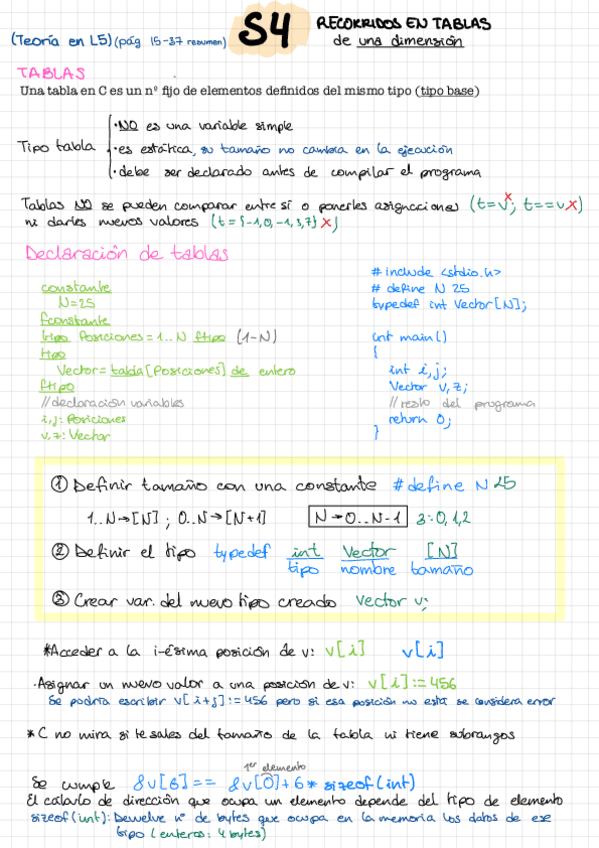 (Teoría en L5) (pág 15-37 resumen) S4 RECORRIDOS EN TABLAS
de una dimensión
TABLAS
Una tabla en C es un nº fijo de elementos definidos del mismo tipo (tipo base)
·NO es una variable simple
Tipo tabla ·es estática, su tamaño no cambia en la ejecución
·debe ser declarado antes de compilar el programa
Tablas NO se pueden comparar entre sí o ponerles asignaciones (t=v; t==v X)
ni darles nuevos valores (t={-1,0,-1,3,7} X)
Declaración de tablas
constante
N=25
fconstante
tipo Posiciones=1..N ftipo (1-N)
tipo
Vector=tabla[Posiciones] de entero
ftipo
//declaración variables
i,j: Posiciones
v,z: Vector
#include <stdio.h>
# define N 25
typedef int Vector[N];
int main()
{
int i,j;
Vector v,z;
//resto del programa
return 0;
}
① Definir tamaño con una constante #define N 25
1..N→[N] ; 0..N→[N+1] N→0..N-1 3:0,1,2
② Definir el tipo typedef int Vector [N]
tipo nombre tamaño
③ Crear var. del nuevo tipo creado vector v;
*Acceder a la i-ésima posición de v: v[i] v[i]
·Asignar un nuevo valor a una posición de v: v[i]:=456
Se podría escribir v[i+j]:=456 pero si esa posición no está se considera error
*C no mira si te sales del tamaño de la tabla ni tiene subrangos
1er elemento
Se cumple &v[6]== &v[0]+6*sizeof(int)
El cálculo de dirección que ocupa un elemento depende del tipo de elemento
sizeof(int): Devuelve nº de bytes que ocupa en la memoria los datos de ese
tipo (enteros: 4 bytes)